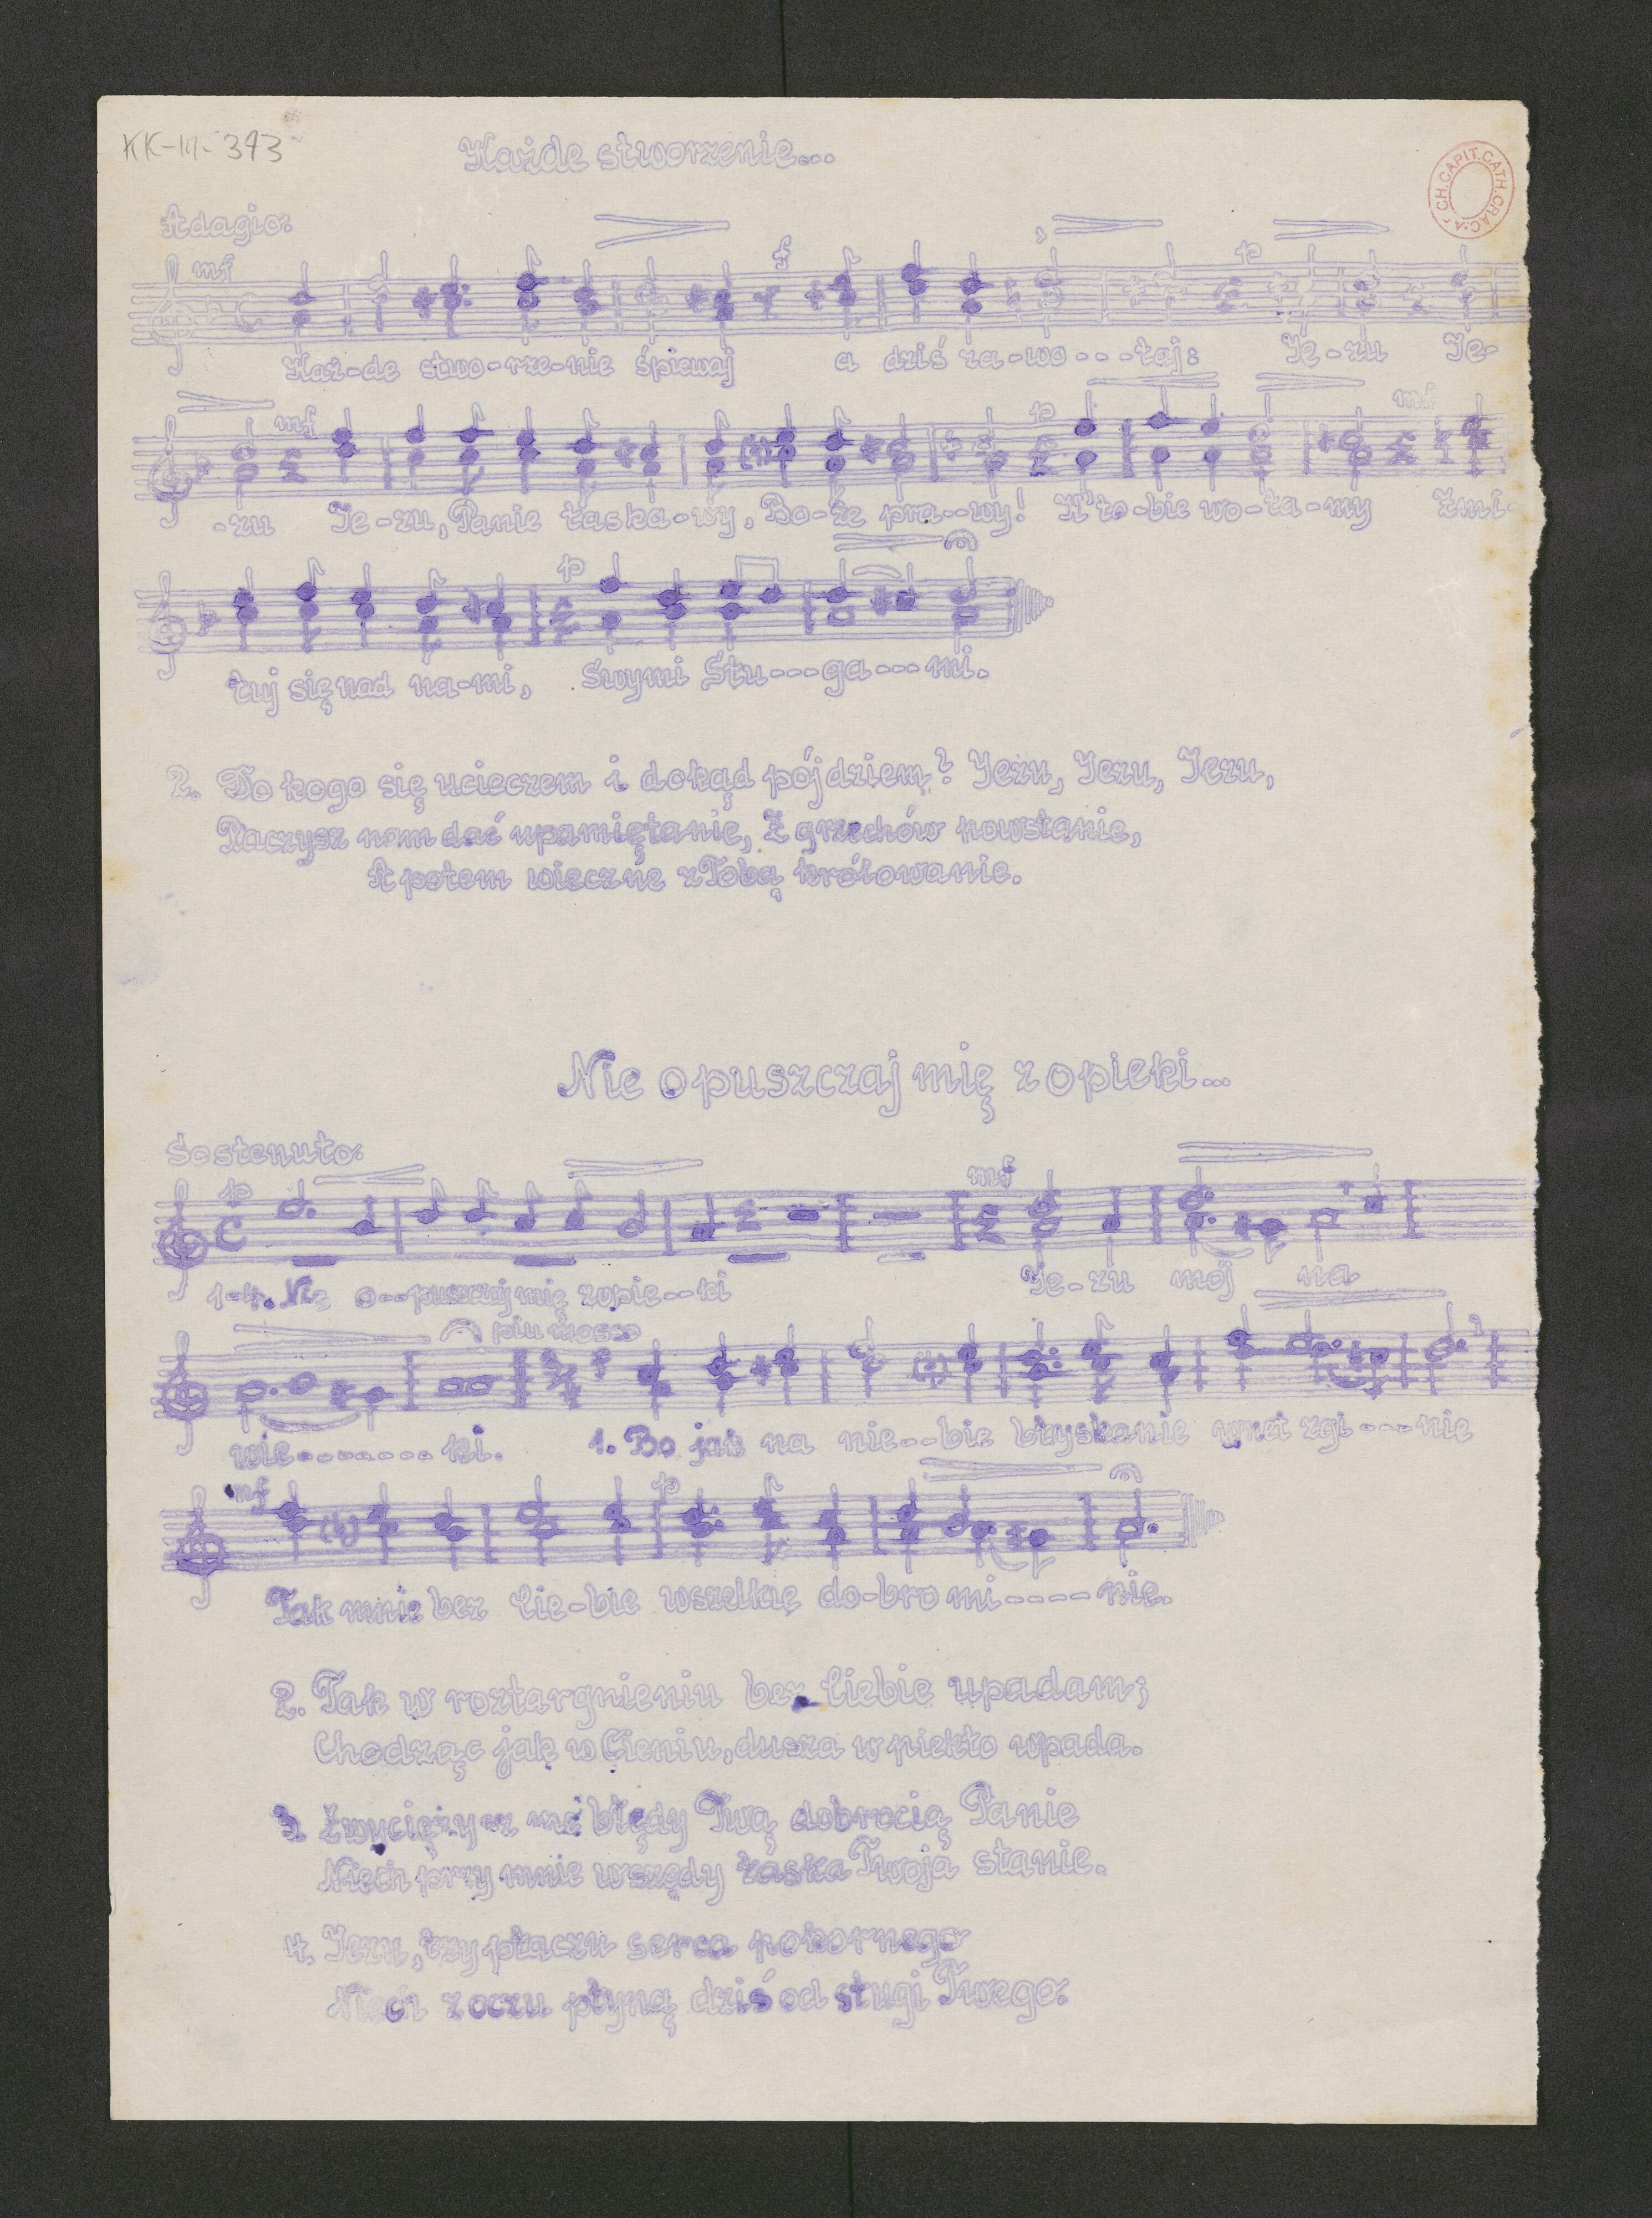 KK-III-393
Każde stworzenie...
CH.CAPIT.CATH.CRAC.
Adagio:
mf f p
Każ-de stwo-rze-nie śpiewaj a dziś za-wo---łaj: Je-zu Je-
mf p mf
-zu Je-zu, Panie łaska-wy, Bo-że pra--wy! K'to-bie wo-ła-my Zmi-
p
łuj się nad na-mi, Swymi Słu---ga---mi.
2. Do kogo się ucieczem i dokąd pójdziem? Jezu, Jezu, Jezu,
Raczysz nam dać upamiętanie, Z grzechów powstanie,
A potem wieczne z Tobą królowanie.
Nie opuszczaj mię z opieki...
Sostenuto:
p mf
1-4. Nie o--puszczaj mię zopie--ki Je-zu mój na
piu mosso
f
wie-------ki. 1. Bo jak na nie--bie błyskanie wnet zgi---nie
mf p
Tak mnie bez Cie-bie wszelkie do-bro mi----nie.
2. Tak w roztargnieniu bez Ciebie upadam;
Chodząc jak w Cieniu, dusza w piekło wpada.
3. Zwyciężysz me błędy Twą dobrocią Panie
Niech przy mnie wszędy łaska Twoja stanie.
4. Jezu, łzy płaczu serca pokornego
Niech z oczu płyną dziś od sługi Twego.